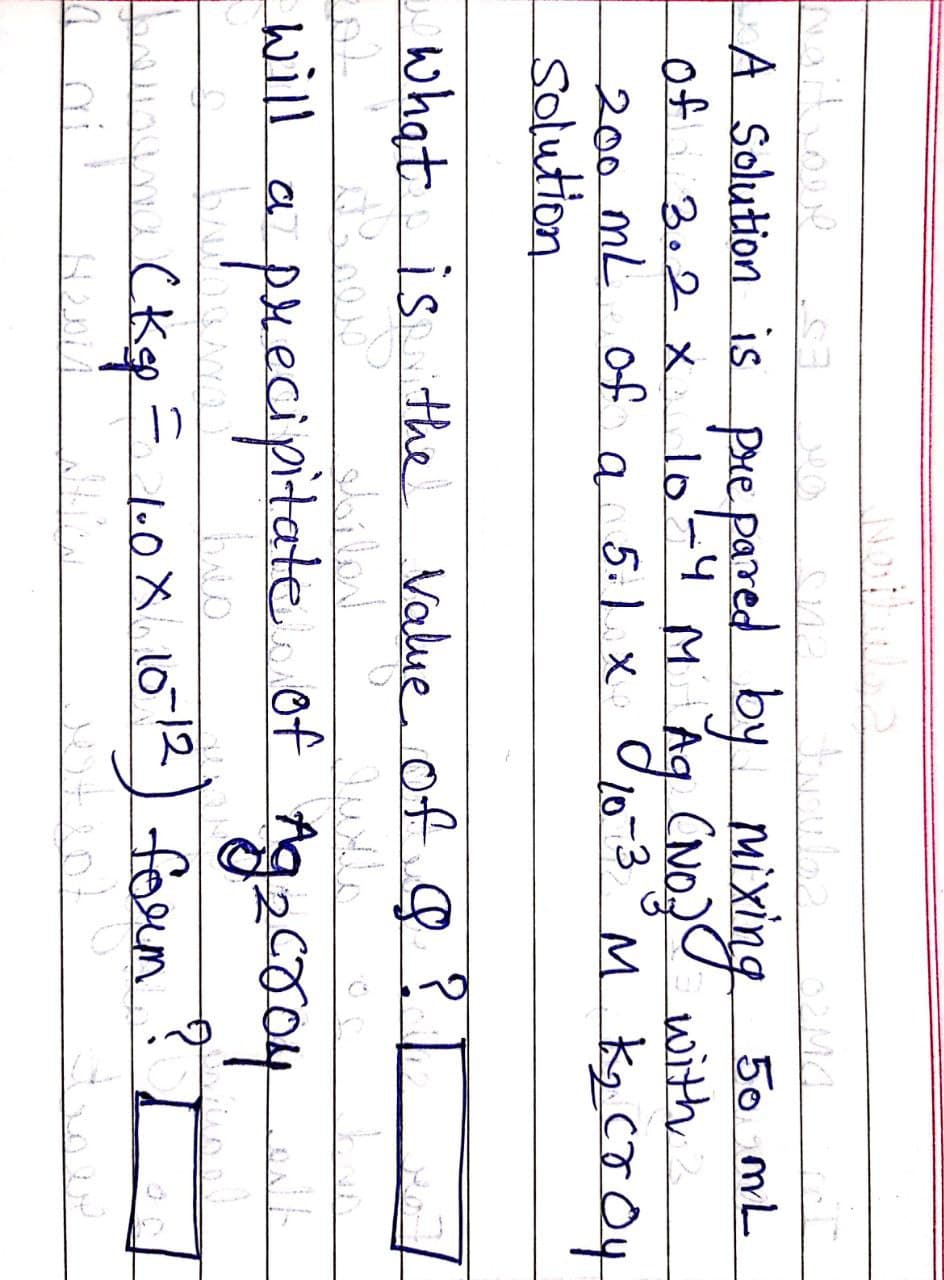 A solution is prepared by mixing 50 mL
of 3.2 x 10⁻⁴ M Ag(NO₃) with
200 mL of a 5.1 x 10⁻³ M K₂CrO₄
solution
what is the value of Q?
will a precipitate of Ag₂CrO₄
(Ksp = 1.0 × 10⁻¹²) form ?